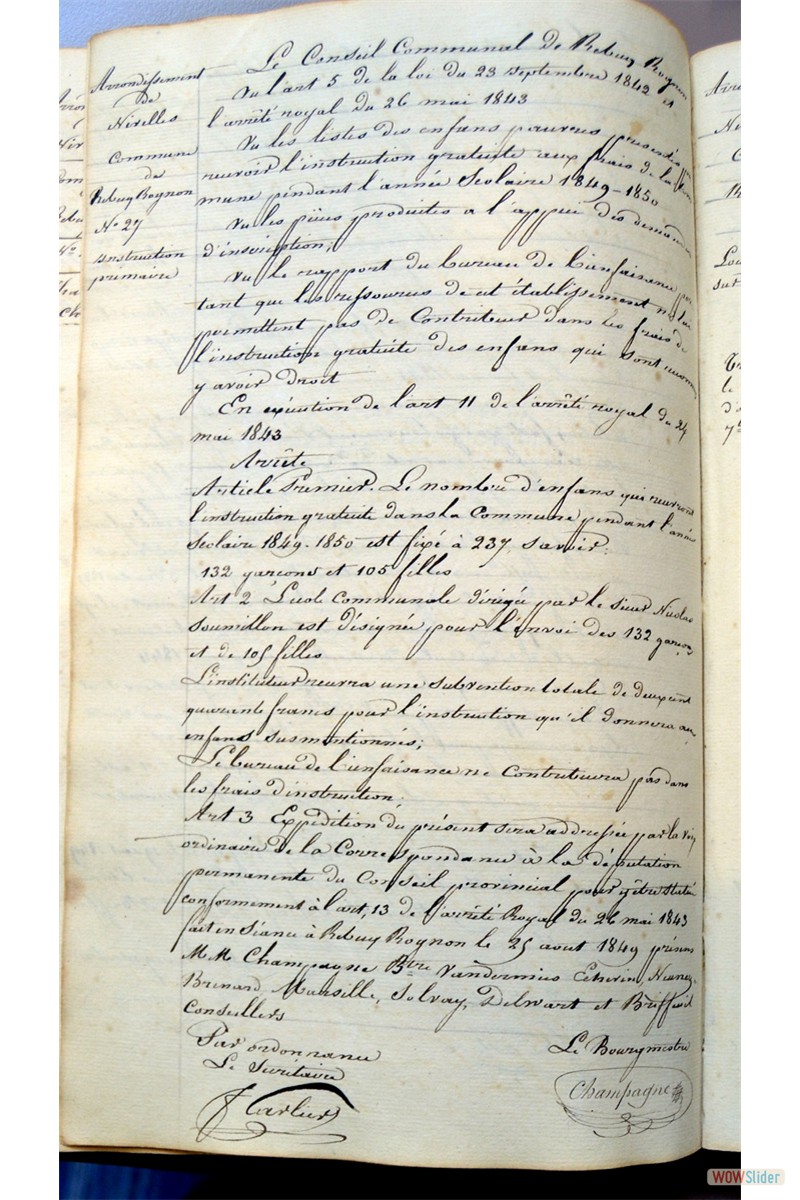 Arrondissement
de
Nivelles
Commune
de
Rebecq Rognon
No 27
instruction
primaire
Le Conseil Communal de Rebecq Rognon
Vu l'art 5 de la loi du 23 septembre 1842 et
l'arrêté royal du 26 mai 1843
Vu les listes des enfans pauvres présentés
recevoir l'instruction gratuite aux frais de la
mune pendant l'année Scolaire 1849-1850
Vu les pièces produites a l'appui des demandes
d'inscription;
Vu le rapport du bureau de bienfaisance
tant que les ressources de cet établissement ne lui
permettent pas de Contribuer dans les frais de
l'instruction gratuite des enfans qui sont
y avoir droit
En exécution de l'art 11 de l'arrêté royal du 24
mai 1843
Arrête
Article Premier. Le nombre d'enfans qui recevront
l'instruction gratuite dans la Commune pendant l'année
Scolaire 1849-1850 est fixé à 237, savoir:
132 garçons et 105 filles
Art 2 L'ecole Communale dirigée par le sieur Nicolas
Soumillon est désignée pour l'envoi des 132 garçons
et de 105 filles
L'instituteur recevra une subvention totale de deux cent
quarente francs pour l'instruction qu'il donnera aux
enfans susmentionnés;
Le bureau de bienfaisance ne Contribuera pas dans
les frais d'instruction;
Art 3 Expédition du présent sera addressée par la voie
ordinaire de la Correspondance à la députation
permanente du Conseil provincial pour y être statué
conformement à l'art, 13 de l'arrêté Royal du 26 mai 1843
fait en Séance à Rebecq Rognon le 25 aout 1849 présens
M.M. Champagne Bgtre
Brenard Marsille, Solvay, Delwart et Briffeuil
Conseillers
Par ordonnance
Le Secrétaire
Carlier
Le Bourgmestre
Champagne
WOWSlider